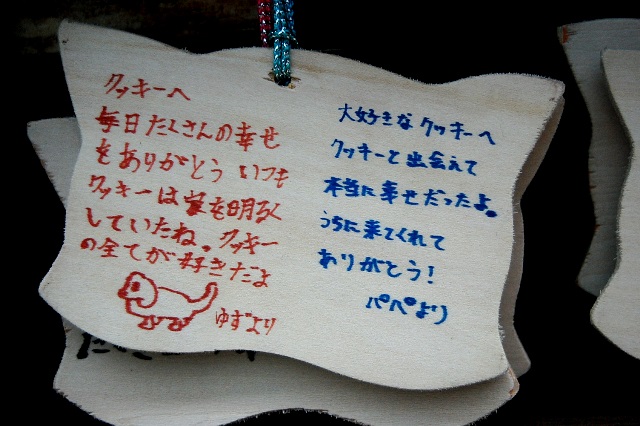 クッキーへ
毎日たくさんの幸せ
をありがとう いつも
クッキーは家を明るく
していたね。クッキー
の全てが好きだよ
ゆずより
大好きなクッキーへ
クッキーと出会えて
本当に幸せだったよ。
うちに来てくれて
ありがとう!
パパより